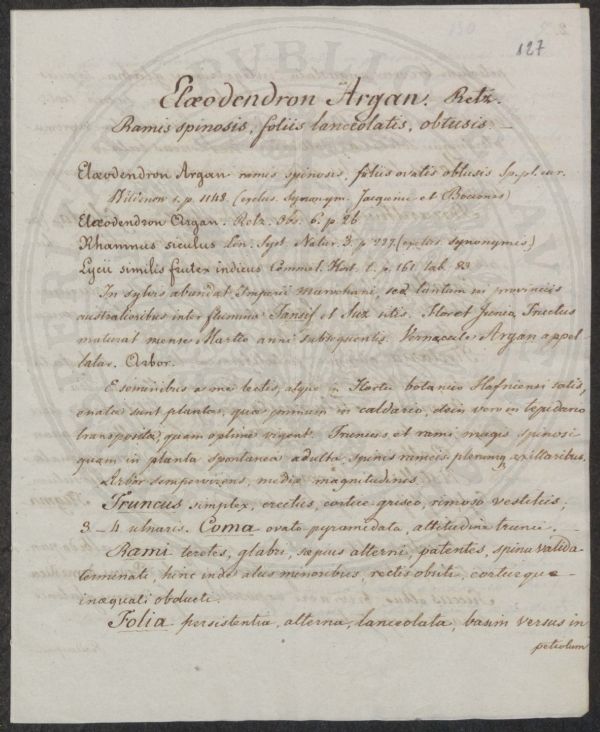 127
Elæodendron Argan. Retz.
Ramis spinosis, foliis lanceolatis, obtusis
Elæodendron Argan ramis spinosis, foliis ovatis obtusis Sp. pl. cur.
Willdenow 1. p. 1148. (exclus. Synonym. Jacquini et Bocconis)
Elæodendron Argan. Retz. Obs. 6. p. 26.
Rhamnus siculus Lin. Syst. Natur. 3. p. 227. (exclus. synonymis)
Lycii similis frutex indicus Commel. Hort. 1. p. 161. tab. 83
In sylvis abundat Imperii Marochani, sed tantum in provinciis
australioribus inter flumina Tansif et Suz sitis. Floret Junio, Fructus
maturat mense Martio anni subsequentis. Vernacule Argan appel
latur. Arbor.
E seminibus a me lectis, atque in Horto botanico Hafniensi satis,
enatæ sunt plantæ, quæ primum in caldario, dein vero in tepidario
transpositæ, quam optime vigent. Truncus et rami magis spinosi
quam in planta spontanea adulta, spinis rameis plerumq. axillaribus.
Arbor sempervirens, mediæ magnitudinis.
Truncus simplex, erectus, cortice griseo, rimoso vestitus,
3 – 4 ulnaris. Coma ovato pyramidata, altitudine trunci.
Rami teretes, glabri, sæpius alterni, patentes, spina valida
terminati, hinc inde aliis minoribus, rectis obsiti, corticeque
inæquali obducti.
Folia persistentia, alterna, lanceolata, basim versus in
petiolum